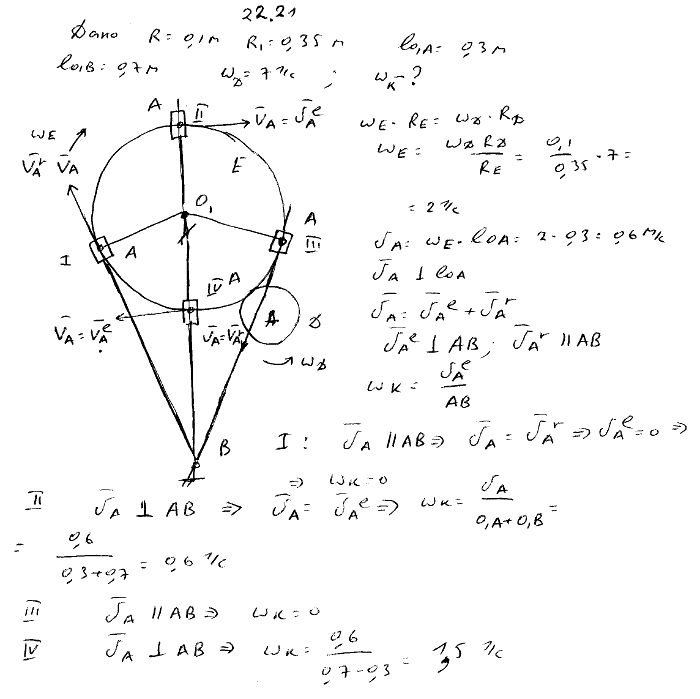 22.21
Дано R = 0,1 м R₁ = 0,35 м lO₁A = 0,3 м
lO₁B = 0,7 м ωD = 7 1/с ; ωK - ?
A II V̄A = V̄Aᵉ
ωE
V̄Aʳ V̄A
E
O₁
A
I A III
IV A
V̄A = V̄Aᵉ V̄A = V̄Aʳ A D
→ ωD
B
ωE · RE = ωD · RD
ωE = ωD RD / RE = 0,1 / 0,35 · 7 =
= 2 1/с
VA = ωE · lOA = 2 · 0,3 = 0,6 м/с
V̄A ⊥ lOA
V̄A = V̄Aᵉ + V̄Aʳ
V̄Aᵉ ⊥ AB; V̄Aʳ || AB
ωK = VAᵉ / AB
I : V̄A || AB ⇒ V̄A = V̄Aʳ ⇒ VAᵉ = 0 ⇒
⇒ ωK = 0
II V̄A ⊥ AB ⇒ V̄A = V̄Aᵉ ⇒ ωK = VA / O₁A + O₁B =
= 0,6 / 0,3 + 0,7 = 0,6 1/с
III V̄A || AB ⇒ ωK = 0
IV V̄A ⊥ AB ⇒ ωK = 0,6 / 0,7 - 0,3 = 1,5 1/с